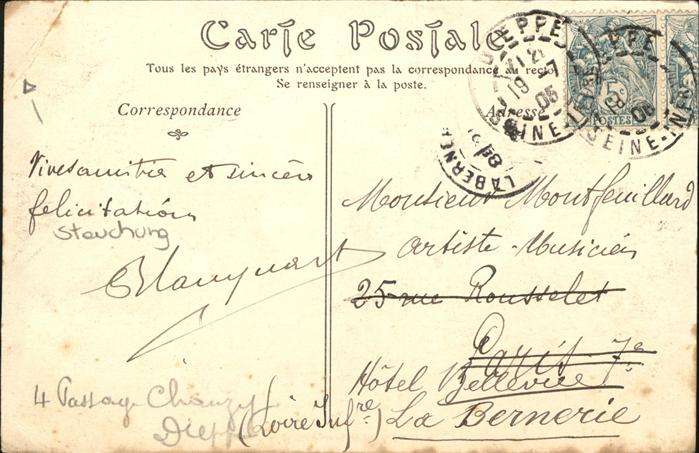 Carte Postale
Tous les pays étrangers n'acceptent pas la correspondance au recto
Se renseigner à la poste.
Correspondance
Adresse
DIEPPE
19
05
SEINE-INF
5c
POSTES
LA BERNERIE
Vives amitiés et sincères
felicitations
Blanquart
4 Passage Chanzy
Dieppe
Monsieur Montfeuillard
artiste-Musicien
25 rue Rousselet
Paris 7e
Hôtel Bellevue
La Bernerie
(Loire Infre)